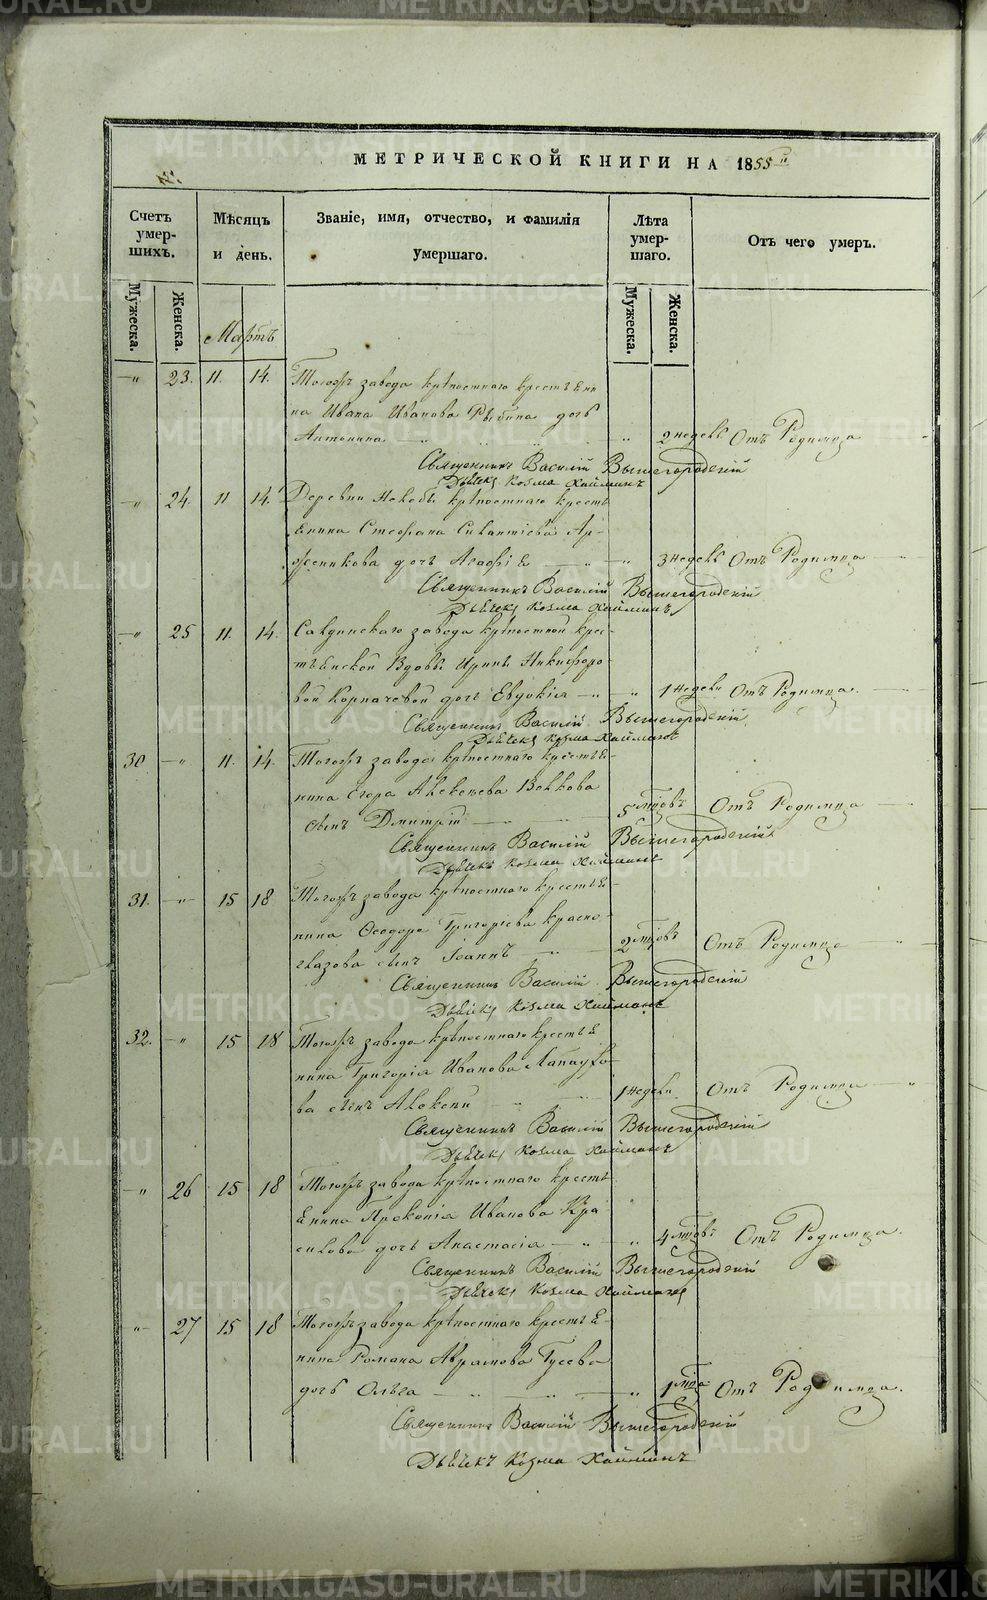 METRIKI.GASO-URAL.RU
МЕТРИЧЕСКОЙ КНИГИ НА 1855
Счетъ умер-шихъ.
Мѣсяцъ и день.
Званіе, имя, отчество, и фамилія умершаго.
Лѣта умер-шаго.
Отъ чего умеръ.
Мужеска.
Женска.
Мартъ
Мужеска.
Женска.
-"- 23. 11. 14. Тогожъ завода крѣпостнаго крестьяни
на Ивана Иванова Рыбина дочь
Антонина 2 недель Отъ Родимца
Священникъ Василій Вышегородскій
Дьячекъ Козма Хайминъ
-"- 24. 11 14. Деревни крѣпостнаго кресть
янина Стефана Ар-
дочь Агафія 3 недель Отъ Родимца
Священникъ Василій Вышегородскій
Дьячекъ Козма Хайминъ
-"- 25 11. 14. Салдинскаго завода крѣпостной крес-
тьянской Вдовы Ирины Никифоро-
вой Корпачевой дочь Евдокія 1 недели Отъ Родимца.
Священникъ Василій Вышегородскій
Дьячекъ Козма Хайминъ
30 -"- 11. 14. Тогожъ завода крѣпостнаго крестья-
нина Егора Алексеева Волкова
сынъ Дмитрій 5 Отъ Родимца
Священникъ Василій Вышегородскій
Дьячекъ Козма Хайминъ
31. -"- 15 18 Тогожъ завода крѣпостнаго крестья-
нина Ѳеодора Григорьева Красно-
глазова сынъ Іоаннъ 2 Отъ Родимца
Священникъ Василій Вышегородскій
Дьячекъ Козма Хайминъ
32. -"- 15 18 Тогожъ завода крѣпостнаго крестья
нина Григорія Иванова Лапаухо-
ва сынъ Алексей 1 недели Отъ Родимца
Священникъ Василій Вышегородскій
Дьячекъ Козма Хайминъ
-"- 26 15 18 Тогожъ завода крѣпостнаго кресть
янина Прокопія Иванова Кра
силова дочь Анастасія 4 Отъ Родимца.
Священникъ Василій Вышегородскій
Дьячекъ Козма Хайминъ
-"- 27 15 18 Тогожъ завода крѣпостнаго крестья-
нина Романа Аврамова Гусева
дочь Ольга 1 Отъ Родимца.
Священникъ Василій Вышегородскій
Дьячекъ Козма Хайминъ